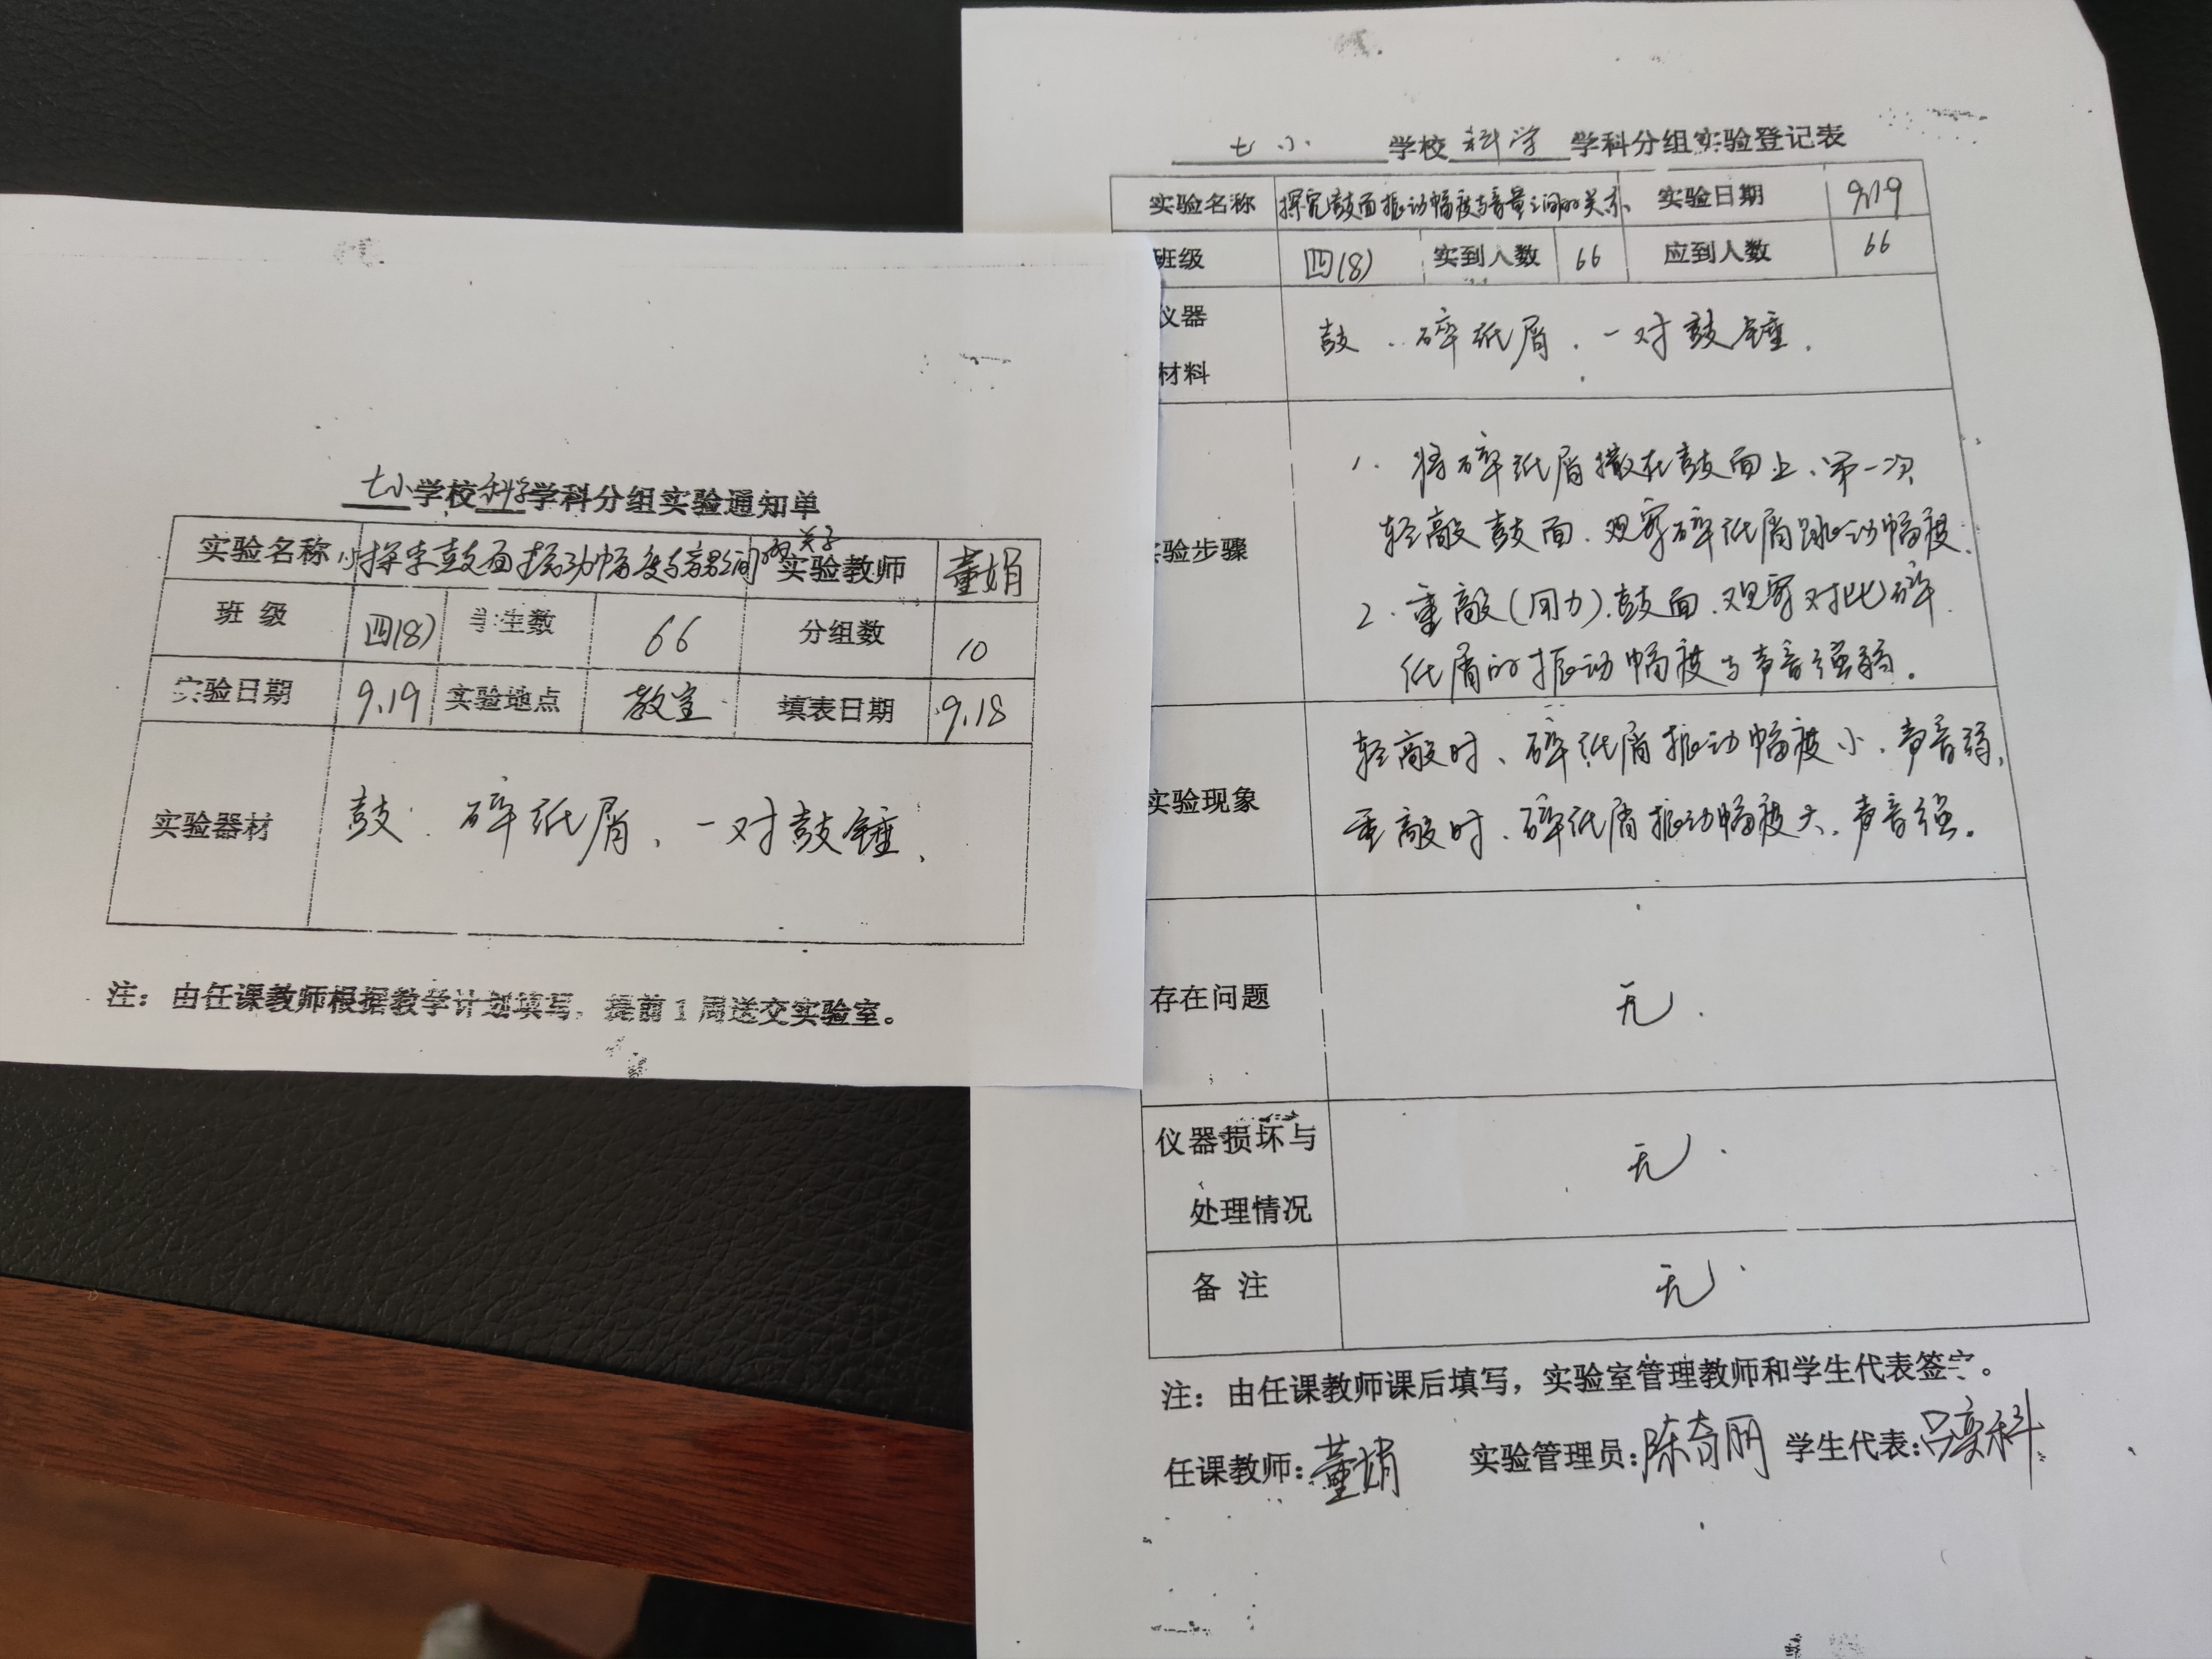 七小学校科学学科分组实验通知单
实验名称 探究鼓面振动幅度与音量之间的关系 实验教师 董娟
班级 四(8) 学生数 66 分组数 10
实验日期 9.19 实验地点 教室 填表日期 9.18
实验器材 鼓、碎纸屑、一对鼓锤.
注：由任课教师根据教学计划填写，提前1周送交实验室。
七小学校科学学科分组实验登记表
实验名称 探究鼓面振动幅度与音量之间的关系、 实验日期 9.19
班级 四(8) 实到人数 66 应到人数 66
仪器
材料
鼓、碎纸屑、一对鼓锤.
验步骤
1. 将碎纸屑撒在鼓面上、第一次
轻敲鼓面、观察碎纸屑跳动幅度.
2. 重敲(用力)鼓面、观察对比碎
纸屑的振动幅度与声音强弱.
实验现象
轻敲时、碎纸屑振动幅度小、声音弱,
重敲时、碎纸屑振动幅度大、声音强.
存在问题 无.
仪器损坏与
处理情况
无.
备注 无.
注：由任课教师课后填写，实验室管理教师和学生代表签字。
任课教师:董娟 实验管理员:陈奇丽 学生代表:吕奕科